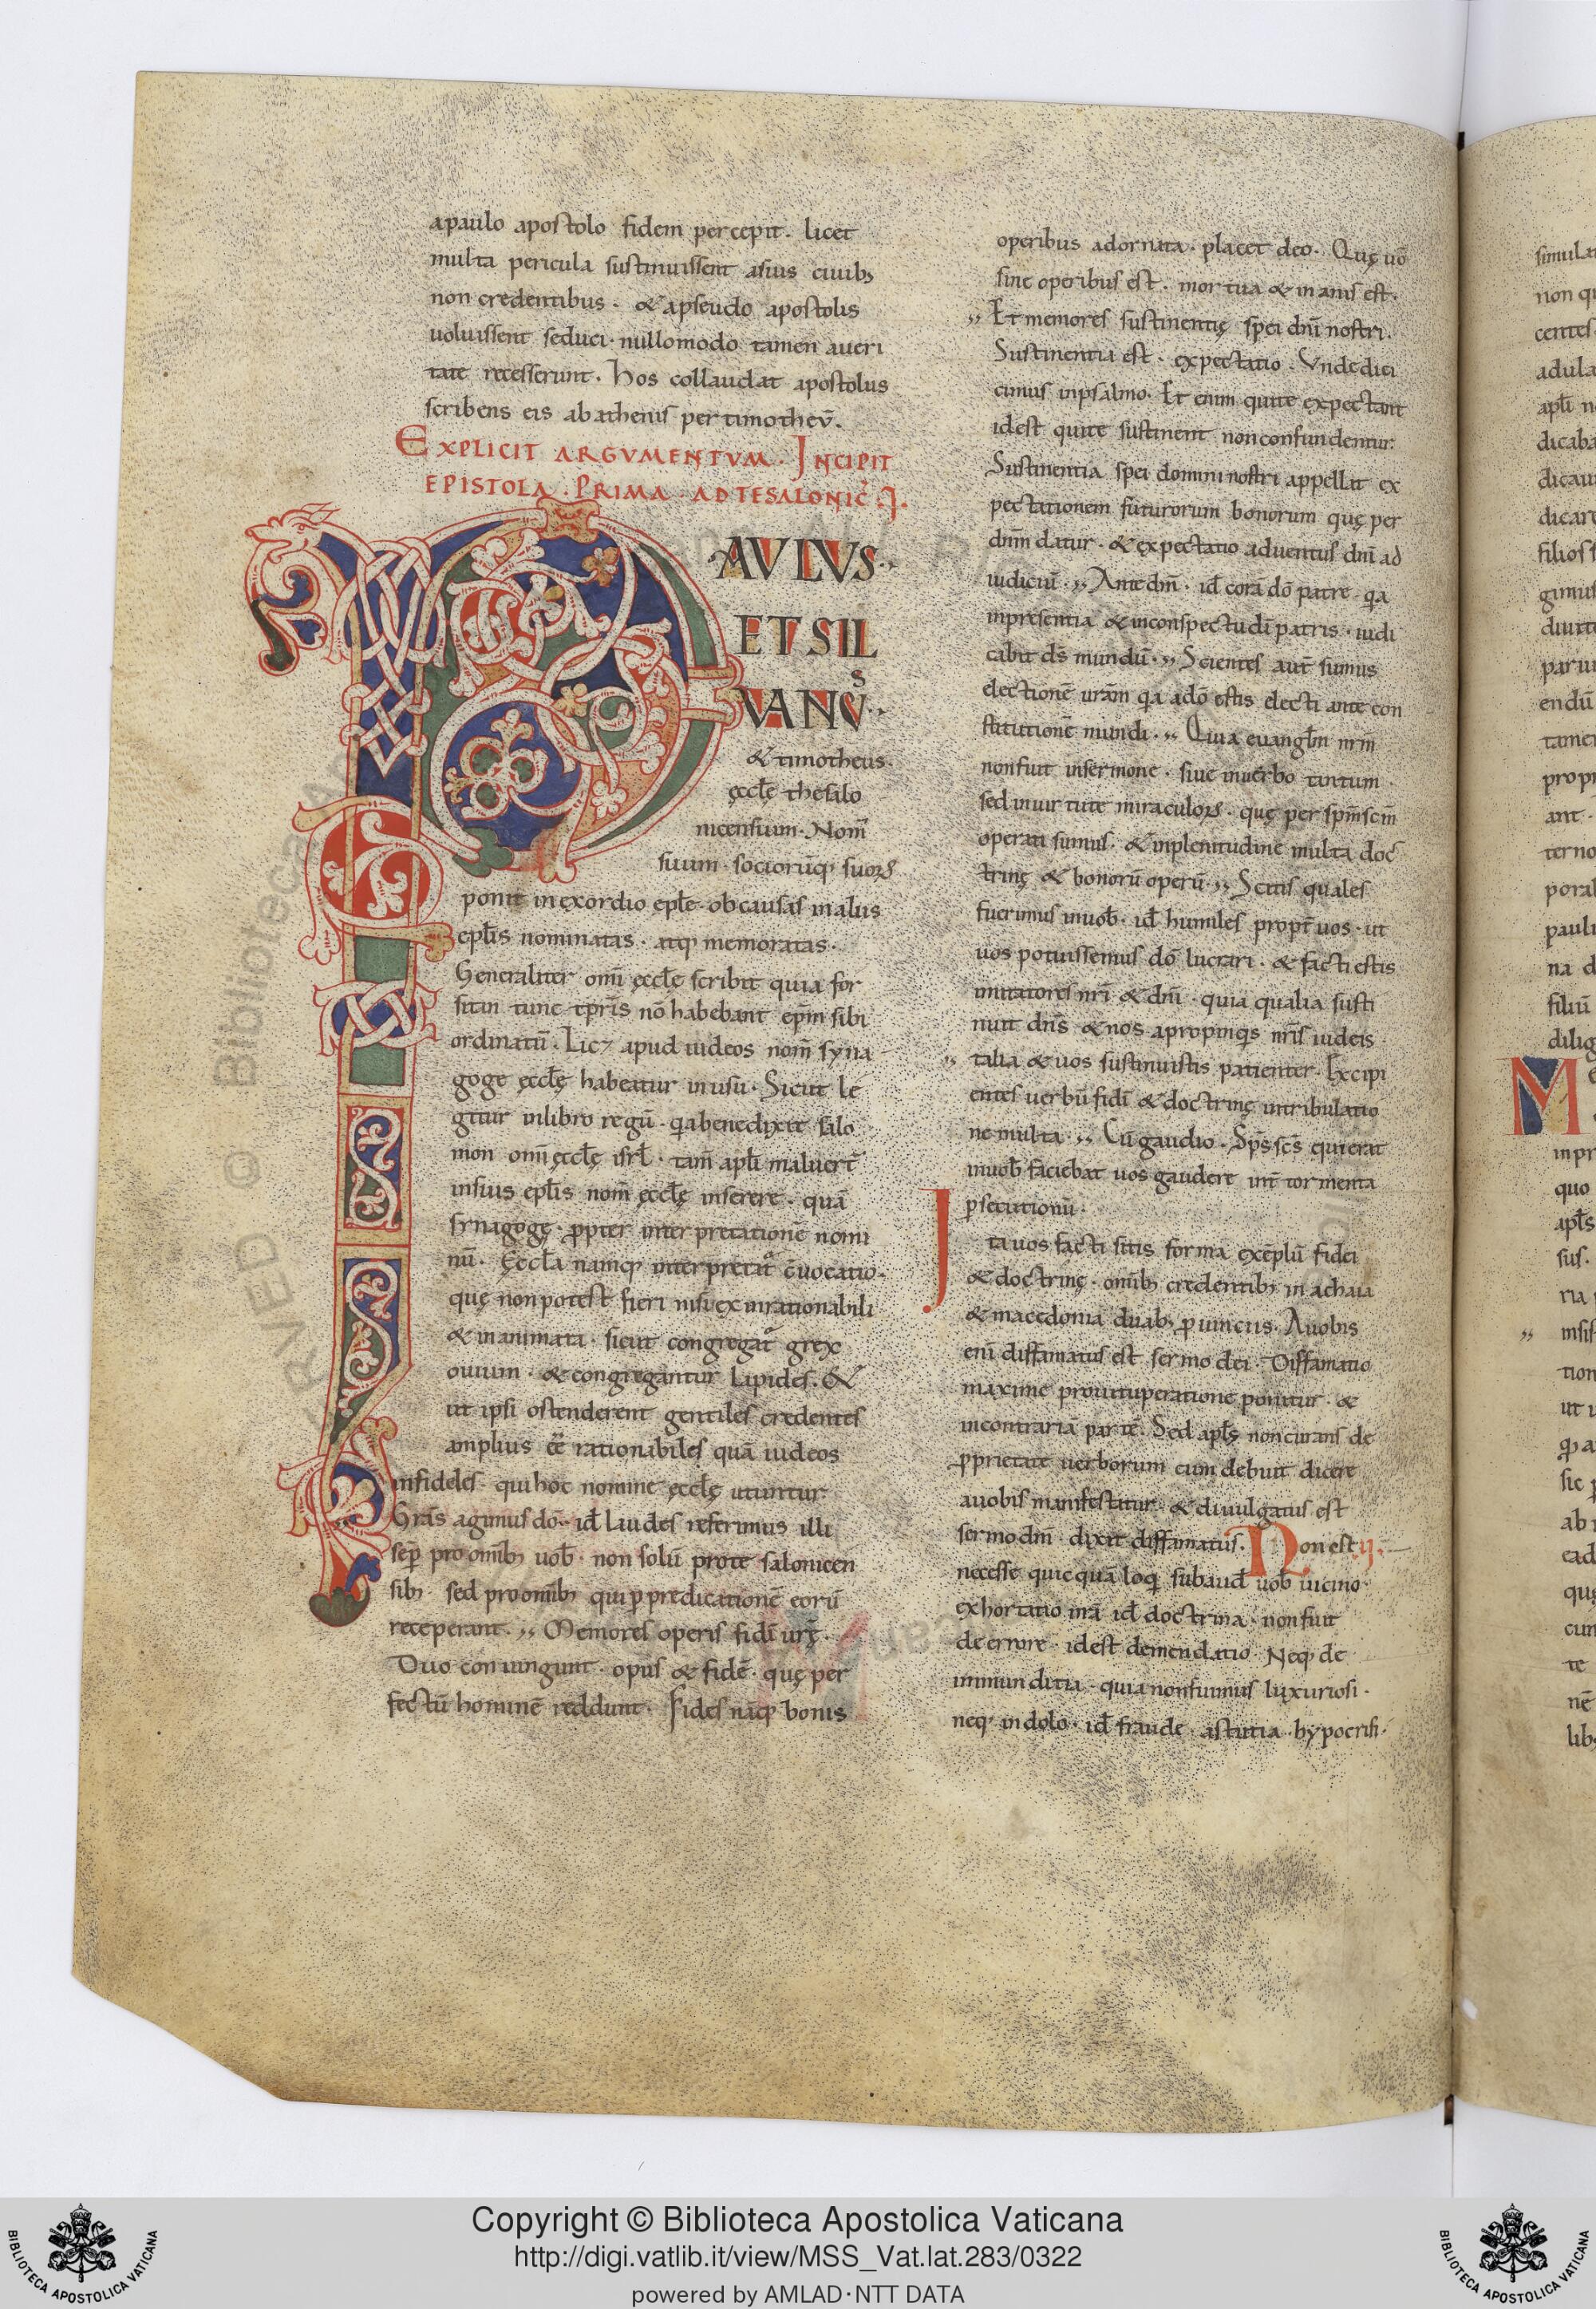 apaulo apostolo fidem percepit. licet
multa pericula sustinuissent asuis ciuib;
non credentibus. & apseudo apostolis
uoluissent seduci. nullomodo tamen aueri
tate recesserunt. Hos collaudat apostolus
scribens eis ab athenis per timotheū.
EXPLICIT ARGVMENTVM. INCIPIT
EPISTOLA. PRIMA. AD TESALONIC̄. I.
PAVLVS.
ET SIL
VANVS.
& timotheus.
ęccłę thesalo
nicensium. Nom̄
suum. sociorūq; suoꝝ
ponit in exordio epłe. ob causas in aliis
epłis nominatas. atq; memoratas.
Generaliter om̄i ęccłę scribit quia for
sitan tunc tp̄ris nō habebant ep̄m sibi
ordinatū. Lic& apud iudeos nom̄ syna
goge ęccłę habeatur in usu. Sicut le
gitur in libro regū. q̄a benedixit salo
mon om̄i ęccłę isrł. tam̄ apłi maluert̄
in suis epłis nom̄ ęccłę inserere. quā
synagogę. ꝓpter interpretationē nomi
nū. Ęccła namq; interpretat̉ c̄uocatio.
quę non potest fieri nisi ex inrationabili
& inanimata. sicut congregat̉ grex
ouium. & congregantur lapides. &
ut ipsi ostenderent gentiles credentes
amplius ēē rationabiles quā iudeos
infideles. qui hoc nomine ęccłę utuntur.
Grās agimus dō. id̄ laudes referimus illi
sep̄ pro omīb; uob̄. non solū pro te salonicen
sib; sed pro omīb; qui ꝑ predicationē eorū
receperant. ,, Memores operis fidī ur̄ę.
Duo coniungunt. opus & fidē. quę per
fectū hominē reddunt. Fides nāq; bonis
operibus adornata. placet deo. Quę uō
sine operibus est. mortua & inanis est.
,, Et memores sustinentię spei dn̄i nostri.
Sustinentia est. expectatio. Vnde dici
cimus in psalmo. Et enim qui te expectant
idest qui te sustinent non confundentur.
Sustinentia spei domini nostri appellat ex
pectationem futurorum bonorum quę per
dn̄m datur. & expectatio aduentus dn̄i ad
iudiciū. ,, Ante dm̄. id̄ corā dō patre. q̄a
in presentia & in conspectu dī patris. iudi
cabit ds̄ mundū. ,, Scientes aut̄ sumus
electionē urām q̄a a dō estis electi ante con
stitutionē mundi. ,, Quia euangłm nr̄m
non fuit in sermone. siue in uerbo tantum.
sed in uirtute miraculoꝝ. quę per sp̄m sc̄m
operati sumus. & in plenitudine multa doc
trinę & bonorū operū. ,, Scitis quales
fuerimus in uob̄. id̄ humiles propt̄ uos. ut
uos potuissemus dō lucrari. & facti estis
imitatores nr̄i & dn̄i. quia qualia susti
nuit dn̄s & nos a propinq̄s nr̄is iudeis
,, talia & uos sustinuistis patienter. Excipi
entes uerbū fidī & doctrinę in tribulatio
ne multa. ,, Cū gaudio. Sp̄s sc̄s qui erat
in uob̄ faciebat uos gaudere int̄ tormenta
ꝑsecutionū.
Ita uos facti sitis forma exēplū fidei
& doctrinę. omīb; credentib; in achaia
& macedonia duab; ꝓuinciis. A uobis
enī diffamatus est sermo dei. Diffamatio
maxime pro uituperatione ponitur. &
in contrariā partē. Sed apłs non curans de
ꝓprietate uerborum cum debuit dicere
a uobis manifestatur. & diuulgatus est
sermo dn̄i. dixit diffamatus. Non est II.
necesse quicquā loqī subaud̄ uob̄ uicino
exhortatio nr̄a id̄ doctrina. non fuit
de errore. idest de mendatio. Neq; de
immunditia. quia non fuimus luxuriosi.
neq; in dolo. id̄ fraude. astutia. hypocrisi.
Copyright © Biblioteca Apostolica Vaticana
http://digi.vatlib.it/view/MSS_Vat.lat.283/0322
powered by AMLAD·NTT DATA
BIBLIOTECA APOSTOLICA VATICANA
BIBLIOTECA APOSTOLICA VATICANA